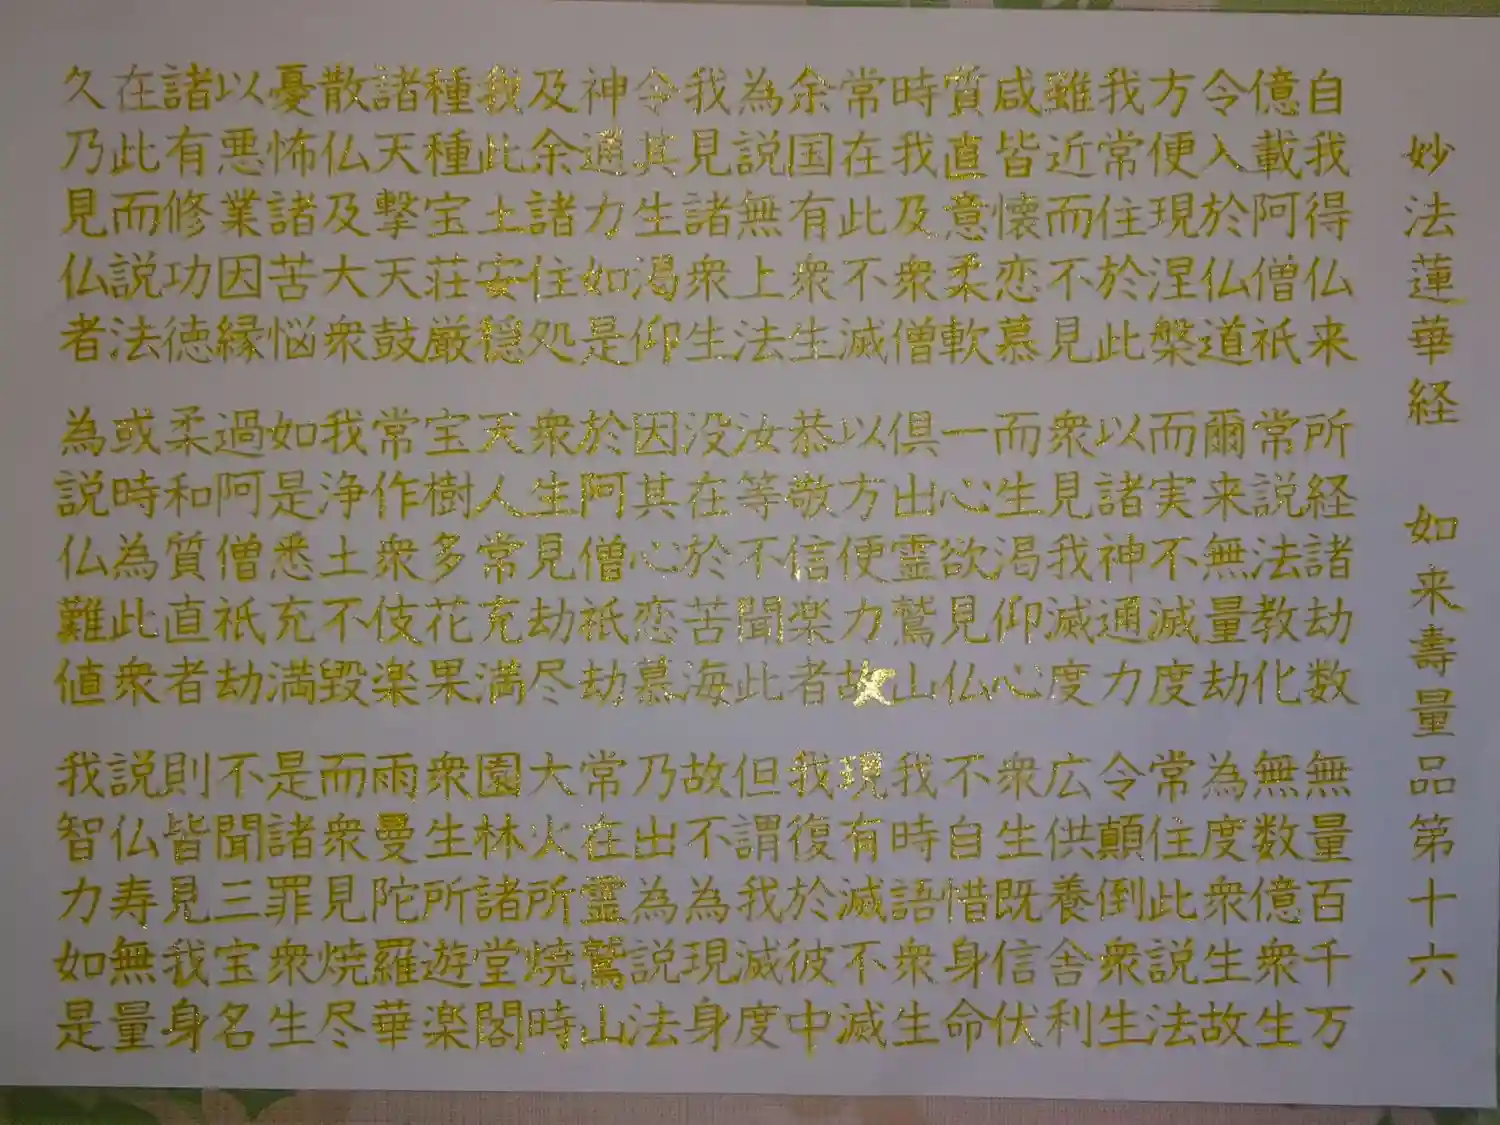 妙法蓮華経 如来壽量品第十六
自我得仏来 所経諸劫数 無量百千万
億載阿僧祇 常説法教化 無数億衆生
令入於仏道 爾来無量劫 為度衆生故
方便現涅槃 而実不滅度 常住此説法
我常住於此 以諸神通力 令顛倒衆生
雖近而不見 衆見我滅度 広供養舎利
咸皆懐恋慕 而生渇仰心 衆生既信伏
質直意柔軟 一心欲見仏 不自惜身命
時我及衆僧 倶出霊鷲山 我時語衆生
常在此不滅 以方便力故 現有滅不滅
余国有衆生 恭敬信楽者 我復於彼中
為説無上法 汝等不聞此 但謂我滅度
我見諸衆生 没在於苦海 故不為現身
令其生渇仰 因其心恋慕 乃出為説法
神通力如是 於阿僧祇劫 常在霊鷲山
及余諸住処 衆生見劫尽 大火所焼時
我此土安穏 天人常充満 園林諸堂閣
種種宝荘厳 宝樹多花果 衆生所遊楽
諸天撃天鼓 常作衆伎楽 雨曼陀羅華
散仏及大衆 我浄土不毀 而衆見焼尽
憂怖諸苦悩 如是悉充満 是諸罪衆生
以悪業因縁 過阿僧祇劫 不聞三宝名
諸有修功徳 柔和質直者 則皆見我身
在此而説法 或時為此衆 説仏寿無量
久乃見仏者 為説仏難値 我智力如是